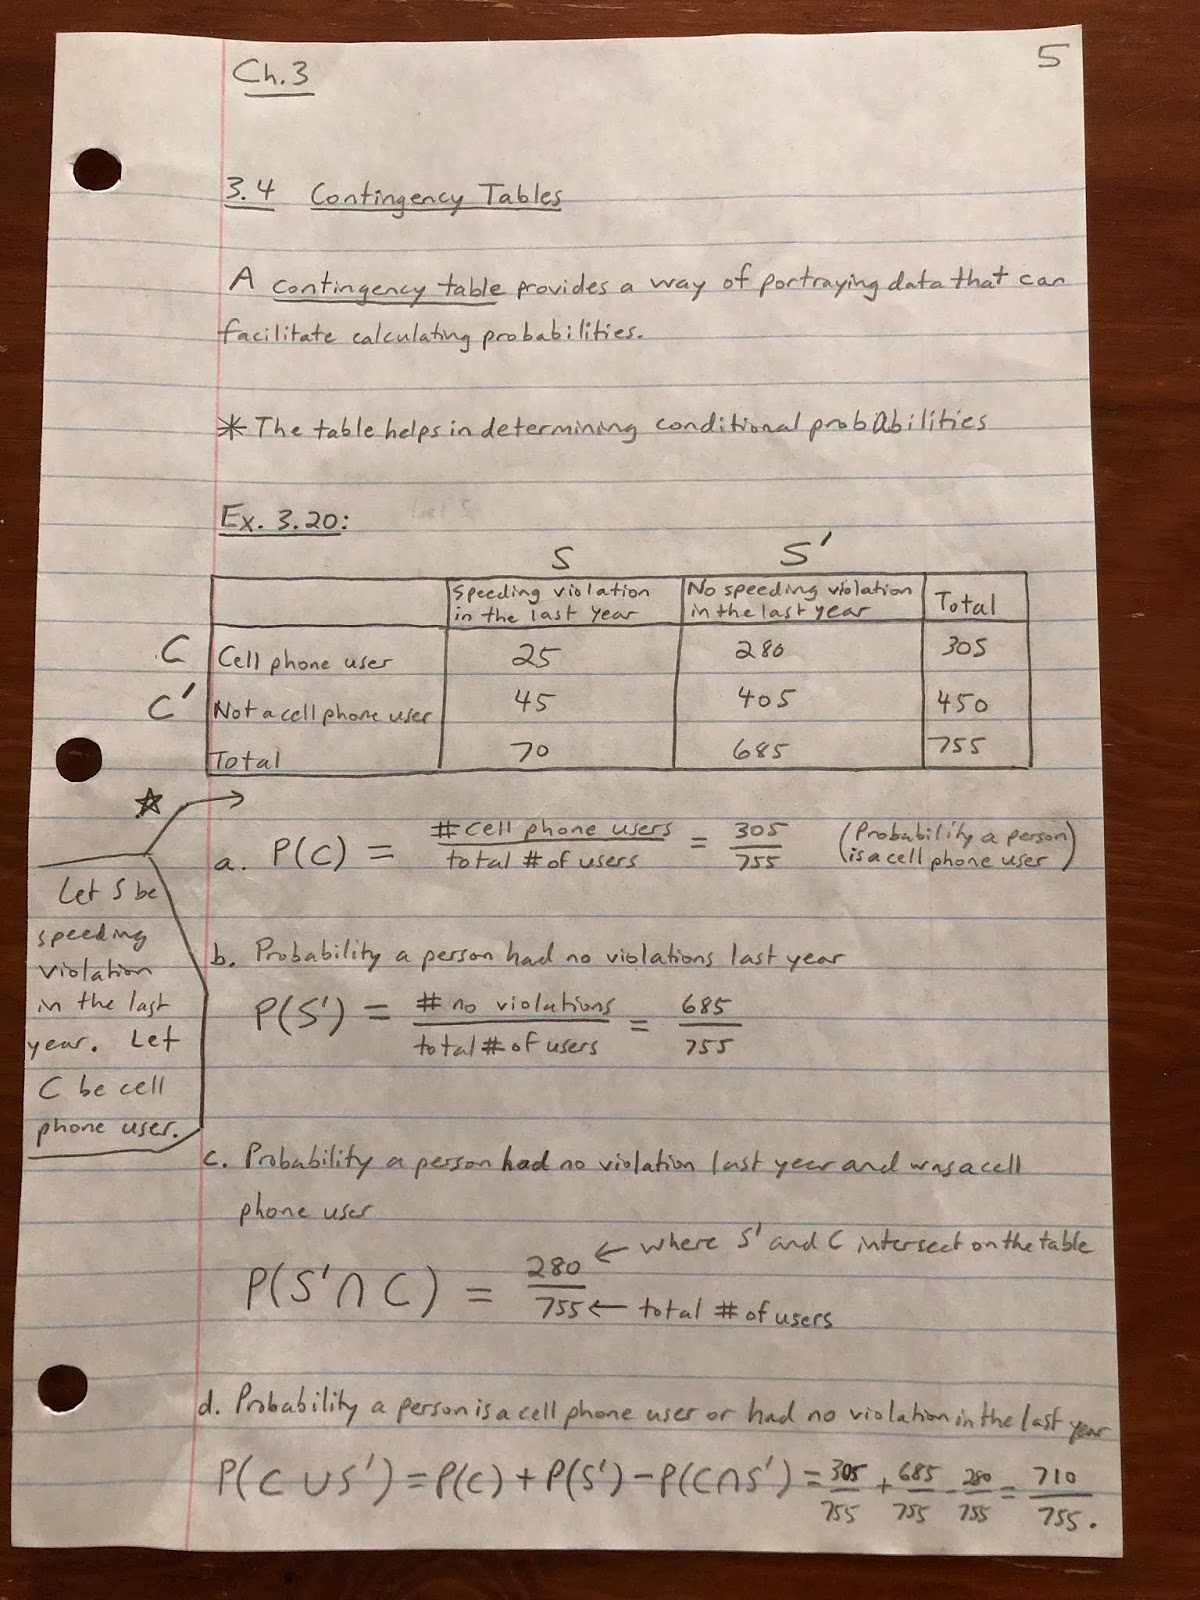 Ch.3
5
3.4 Contingency Tables
A contingency table provides a way of portraying data that can
facilitate calculating probabilities.
* The table helps in determining conditional probabilities
Ex. 3.20:
S S'
Speeding violation in the last year No speeding violation in the last year Total
C Cell phone user 25 280 305
C' Not a cell phone user 45 405 450
Total 70 685 755
☆ →
Let S be
speeding
violation
in the last
year. Let
C be cell
phone user.
a. P(C) = # cell phone users / total # of users = 305/755 (Probability a person is a cell phone user)
b. Probability a person had no violations last year
P(S') = # no violations / total # of users = 685/755
c. Probability a person had no violation last year and was a cell
phone user
P(S' ∩ C) = 280/755
← where S' and C intersect on the table
← total # of users
d. Probability a person is a cell phone user or had no violation in the last year
P(C ∪ S') = P(C) + P(S') - P(C ∩ S') = 305/755 + 685/755 - 280/755 = 710/755.